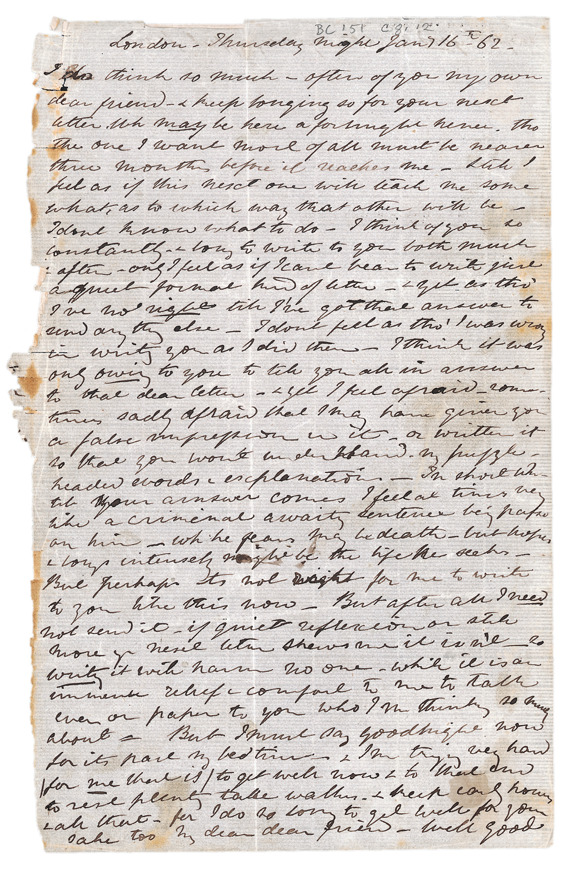 BC 151
London - Thursday night Jany 16th - 62 -
I do think so much - often of you my own
dear friend - & keep longing so for your next
letter wh may be here a fortnight hence. tho
the one I want most of all must be nearer
three months before it reaches me - Still I
feel as if this next one will teach me some
what, as to which way that other will be -
I dont know what to do - I think of you so
constantly - & long to write to you both much
& often - only I feel as if I cant bear to write just
a quiet formal kind of letter - & yet as tho'
I've no right till I've got that answer to
send any thg else - I dont feel as tho' I was wrong
in writg you as I did then - I think it was
only owing to you to tell you all in answer
to that dear letter - & yet I feel afraid some-
times sadly afraid that I may have given you
a false impression in it - or written it
so that you wont understand my puzzle-
headed words & explanation. - In short
till your answer comes I feel at times very
like a criminal awaitg sentence beig passed
on him - wh he fears may be death - but hopes
& longs intensely maybe the life he seeks -
But perhaps its not right for me to write
to you like this now - But after all I need
not send it - if quiet reflexion or still
more yr next letter shews me it isn't - so
writg it will harm no one - while it is an
immense relief & comfort to me to talk
even on paper to you who I'm thinkig so much
about - But I must say goodnight now
for its past my bedtime - & I'm tryg very hard
(for me that is) to get well now & to that end
to rest plenty take walks - & keep early hours
& all that - for I do so long to get well for your
sake too my dear dear friend - Well good